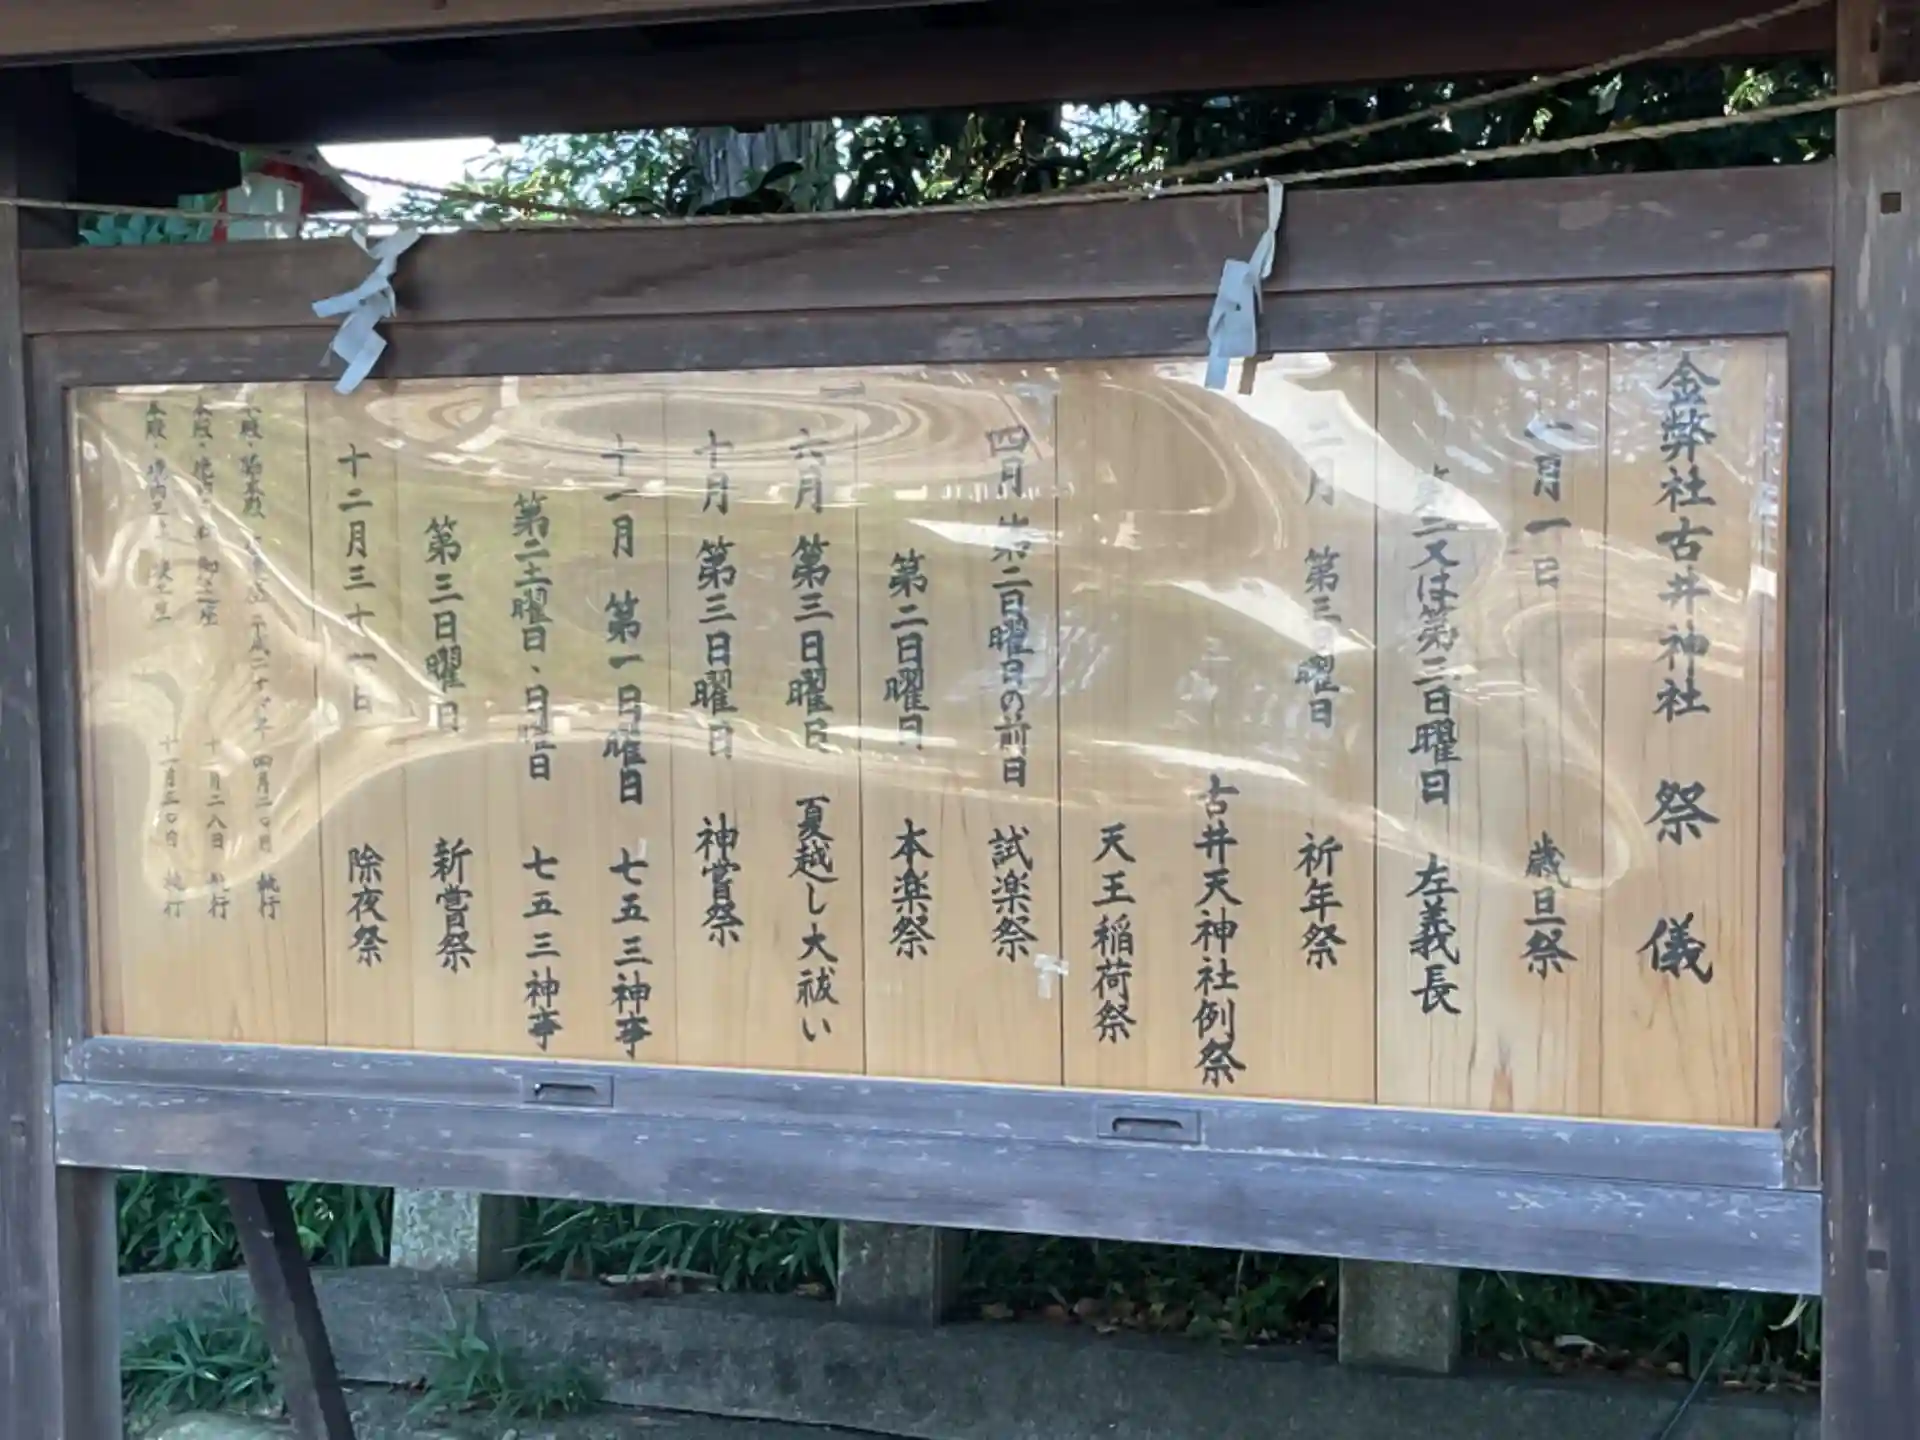 金弊社古井神社 祭儀
一月一日 歳旦祭
第二又は第三日曜日 左義長
二月 第三日曜日 祈年祭
古井天神社例祭
天王稲荷祭
四月 第二日曜日の前日 試楽祭
第二日曜日 本楽祭
六月 第三日曜日 夏越し大祓い
十月 第三日曜日 神嘗祭
十一月 第一日曜日 七五三神事
第二土曜日、日曜日 七五三神事
第三日曜日 新嘗祭
十二月三十一日 除夜祭
四月二〇日 執行
十一月二八日 執行
十一月三〇日 執行